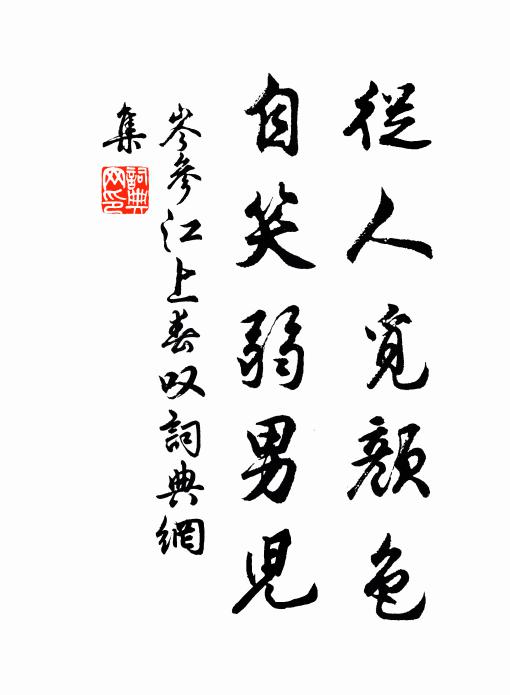 從人覓顏色
自笑弱男兒
岑參江上春叹詞典網
集
詞典
网印